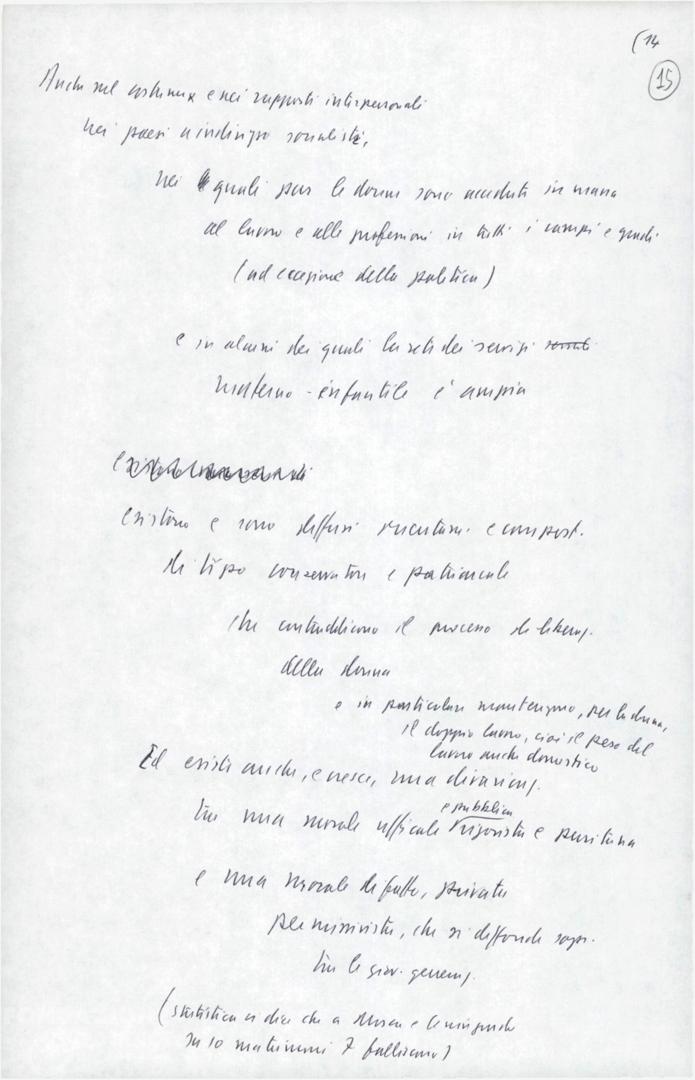 (14
15
Anche nel costume e nei rapporti interpersonali
nei paesi a indirizzo socialista,
nei quali pur le donne sono accedute in massa
al lavoro e alle professioni in tutti i campi e gradi
(ad eccezione della politica)
e in alcuni dei quali la rete dei servizi sociali
materno-infantile è ampia
esistono e sono diffusi e comport.
di tipo conservatore e patriarcale
che contraddicono il processo di liberaz.
della donna
e in particolare mantengono, per la donna,
il doppio lavoro, cioè il peso del
lavoro anche domestico
Ed esiste anche, e cresce, una divaricaz.
e pubblica
tra una morale ufficiale rigorista e puritana
e una morale di fatto, privata
permissivista, che si diffonde sopr.
tra le giov. generaz.
(statistica ci dice che a Mosca e Leningrado
su 10 matrimoni 7 falliscono)